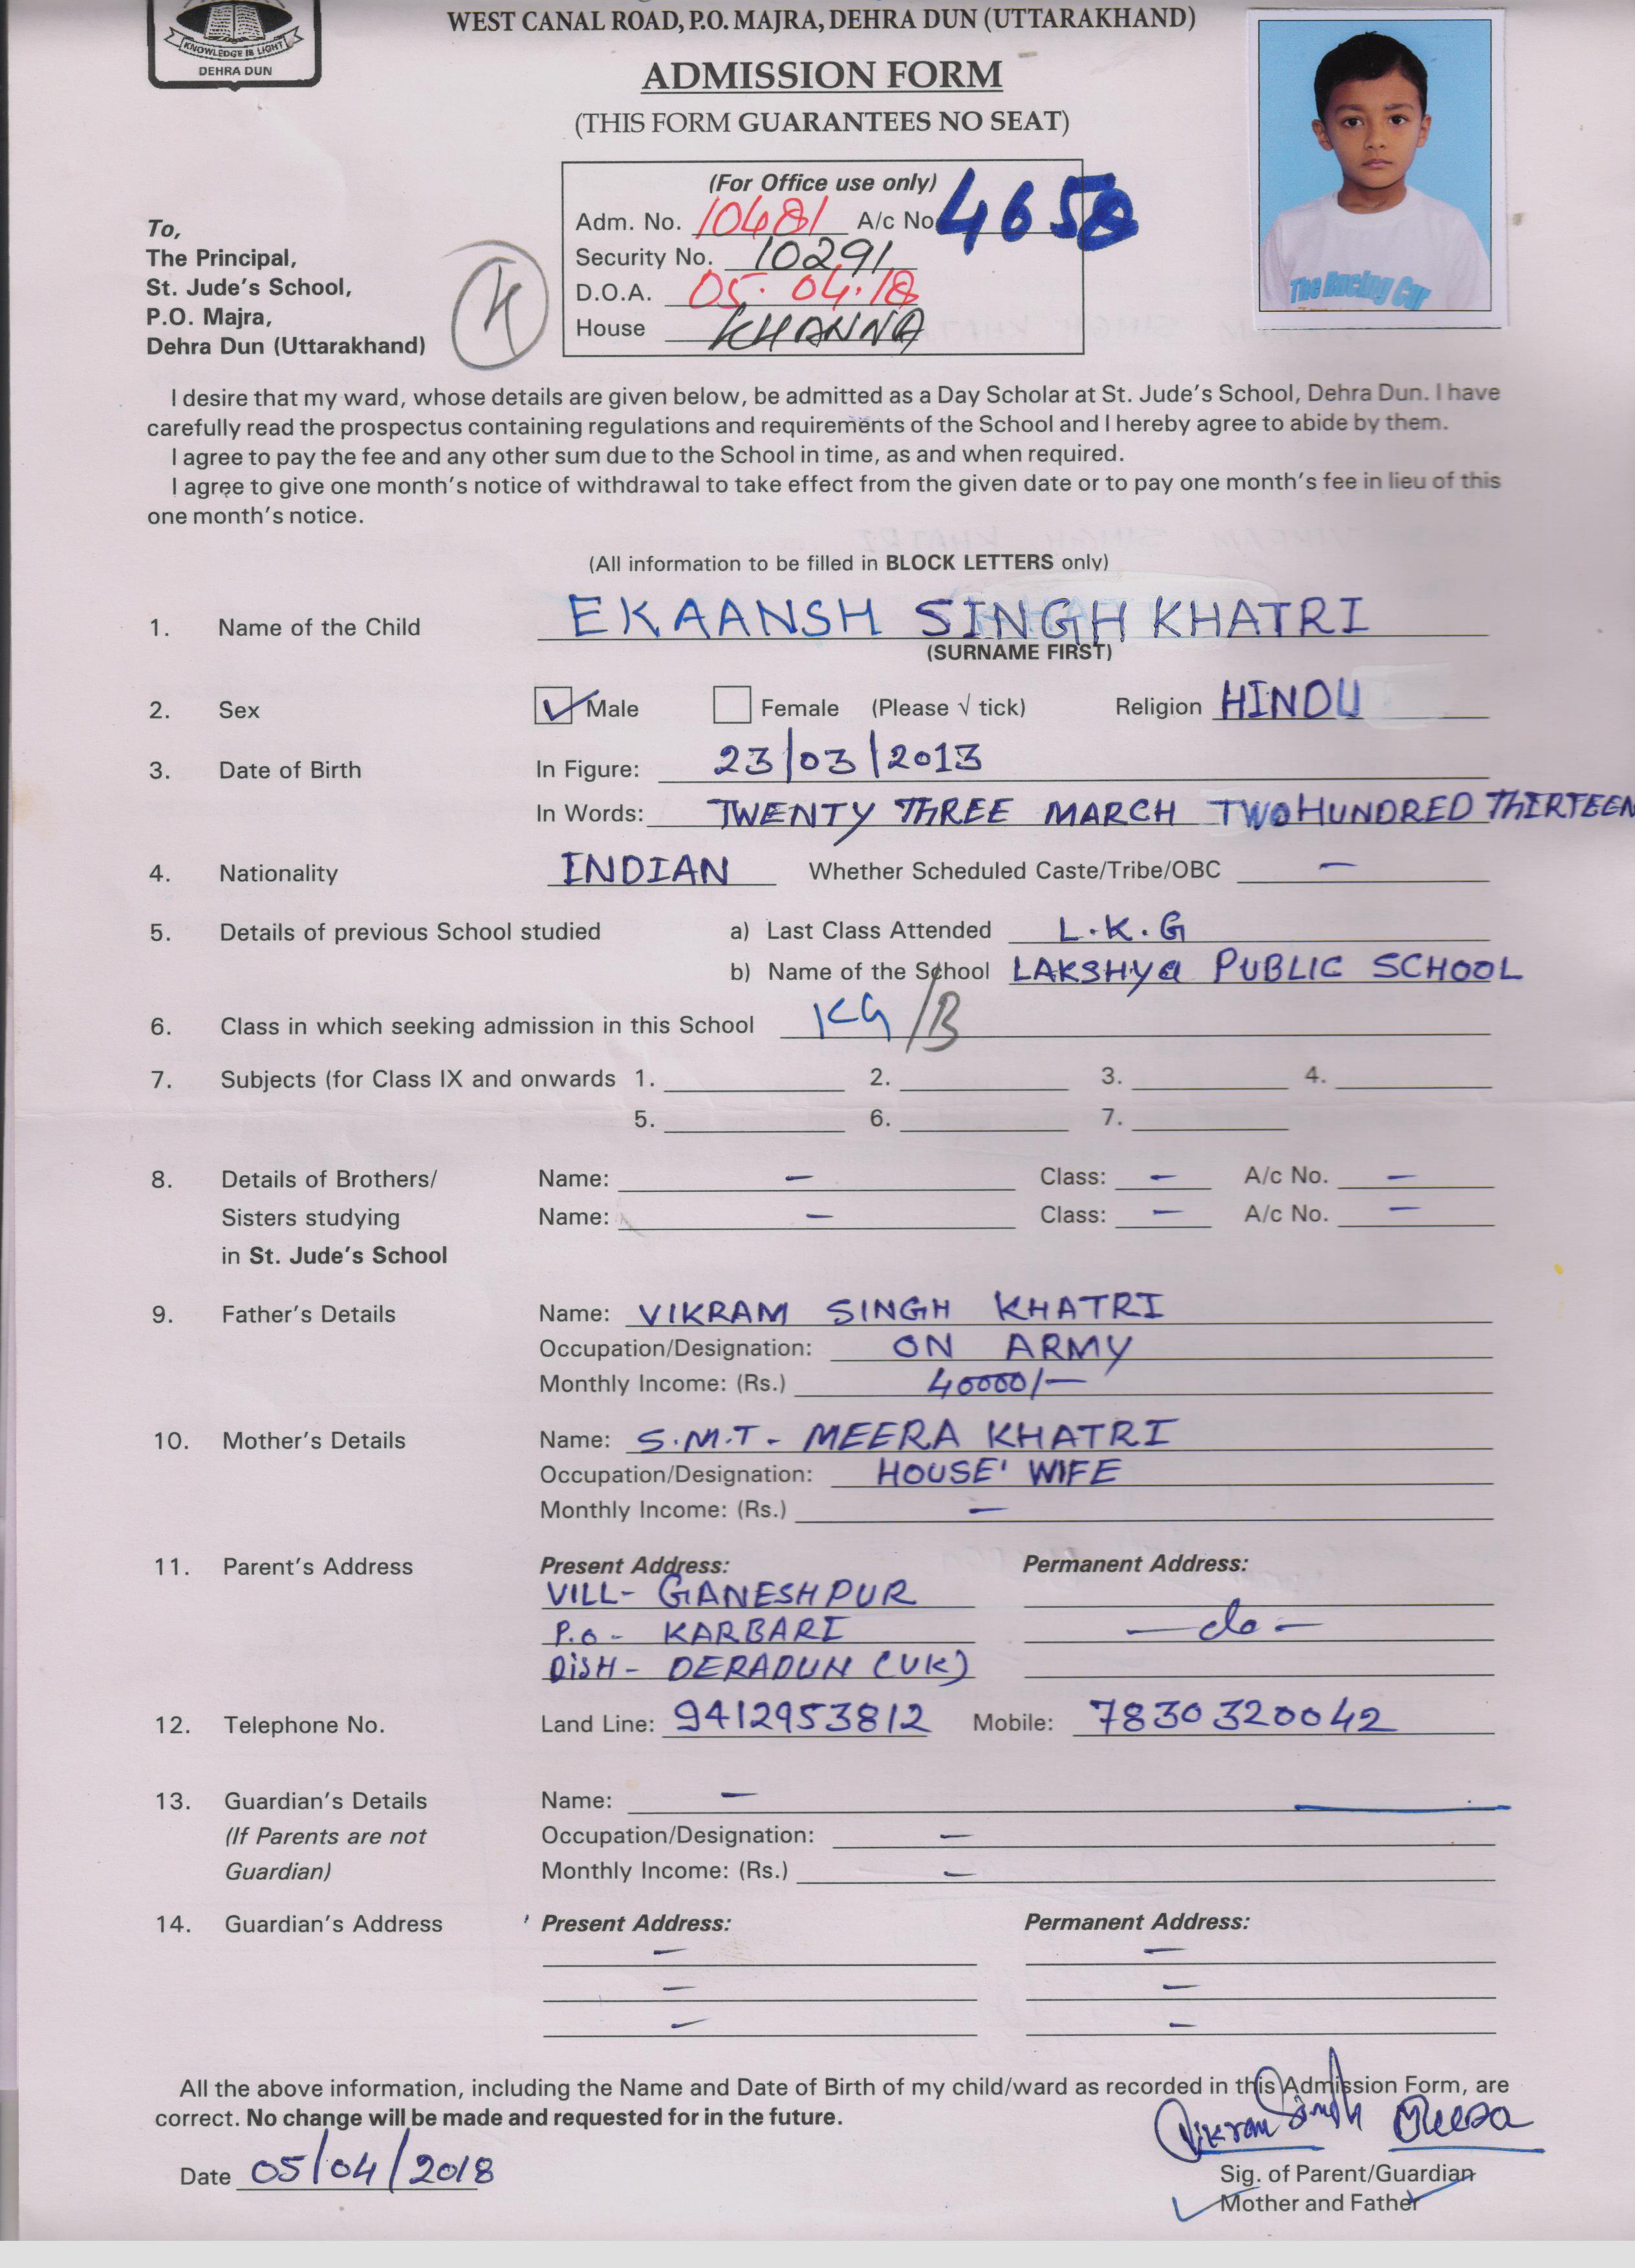 WEST CANAL ROAD, P.O. MAJRA, DEHRA DUN (UTTARAKHAND)
KNOWLEDGE IS LIGHT
DEHRA DUN
ADMISSION FORM
(THIS FORM GUARANTEES NO SEAT)
(For Office use only)
Adm. No. 10481 A/c No. 4658
Security No. 10291
D.O.A. 05.04.18
House KHANNA
K
To,
The Principal,
St. Jude's School,
P.O. Majra,
Dehra Dun (Uttarakhand)
The Racing Car
I desire that my ward, whose details are given below, be admitted as a Day Scholar at St. Jude's School, Dehra Dun. I have
carefully read the prospectus containing regulations and requirements of the School and I hereby agree to abide by them.
I agree to pay the fee and any other sum due to the School in time, as and when required.
I agree to give one month's notice of withdrawal to take effect from the given date or to pay one month's fee in lieu of this
one month's notice.
(All information to be filled in BLOCK LETTERS only)
1. Name of the Child EKAANSH SINGH KHATRI
(SURNAME FIRST)
2. Sex Male Female (Please √ tick) Religion HINDU
3. Date of Birth In Figure: 23/03/2013
In Words: TWENTY THREE MARCH TWO HUNDRED THIRTEEN
4. Nationality INDIAN Whether Scheduled Caste/Tribe/OBC —
5. Details of previous School studied a) Last Class Attended L.K.G
b) Name of the School LAKSHYa PUBLIC SCHOOL
6. Class in which seeking admission in this School KG/B
7. Subjects (for Class IX and onwards 1. 2. 3. 4.
5. 6. 7.
8. Details of Brothers/ Name: — Class: — A/c No. —
Sisters studying Name: — Class: — A/c No. —
in St. Jude's School
9. Father's Details Name: VIKRAM SINGH KHATRI
Occupation/Designation: ON ARMY
Monthly Income: (Rs.) 40000/—
10. Mother's Details Name: S.M.T- MEERA KHATRI
Occupation/Designation: HOUSE' WIFE
Monthly Income: (Rs.) —
11. Parent's Address Present Address: Permanent Address:
VILL- GANESHPUR
P.o- KARBARI —do-
DISH- DERADUN (UK)
12. Telephone No. Land Line: 9412953812 Mobile: 7830320042
13. Guardian's Details Name: —
(If Parents are not Occupation/Designation: —
Guardian) Monthly Income: (Rs.) —
14. Guardian's Address Present Address: Permanent Address:
— —
— —
— —
All the above information, including the Name and Date of Birth of my child/ward as recorded in this Admission Form, are
correct. No change will be made and requested for in the future.
Vikram Singh Meera
Date 05/04/2018
Sig. of Parent/Guardian
Mother and Father